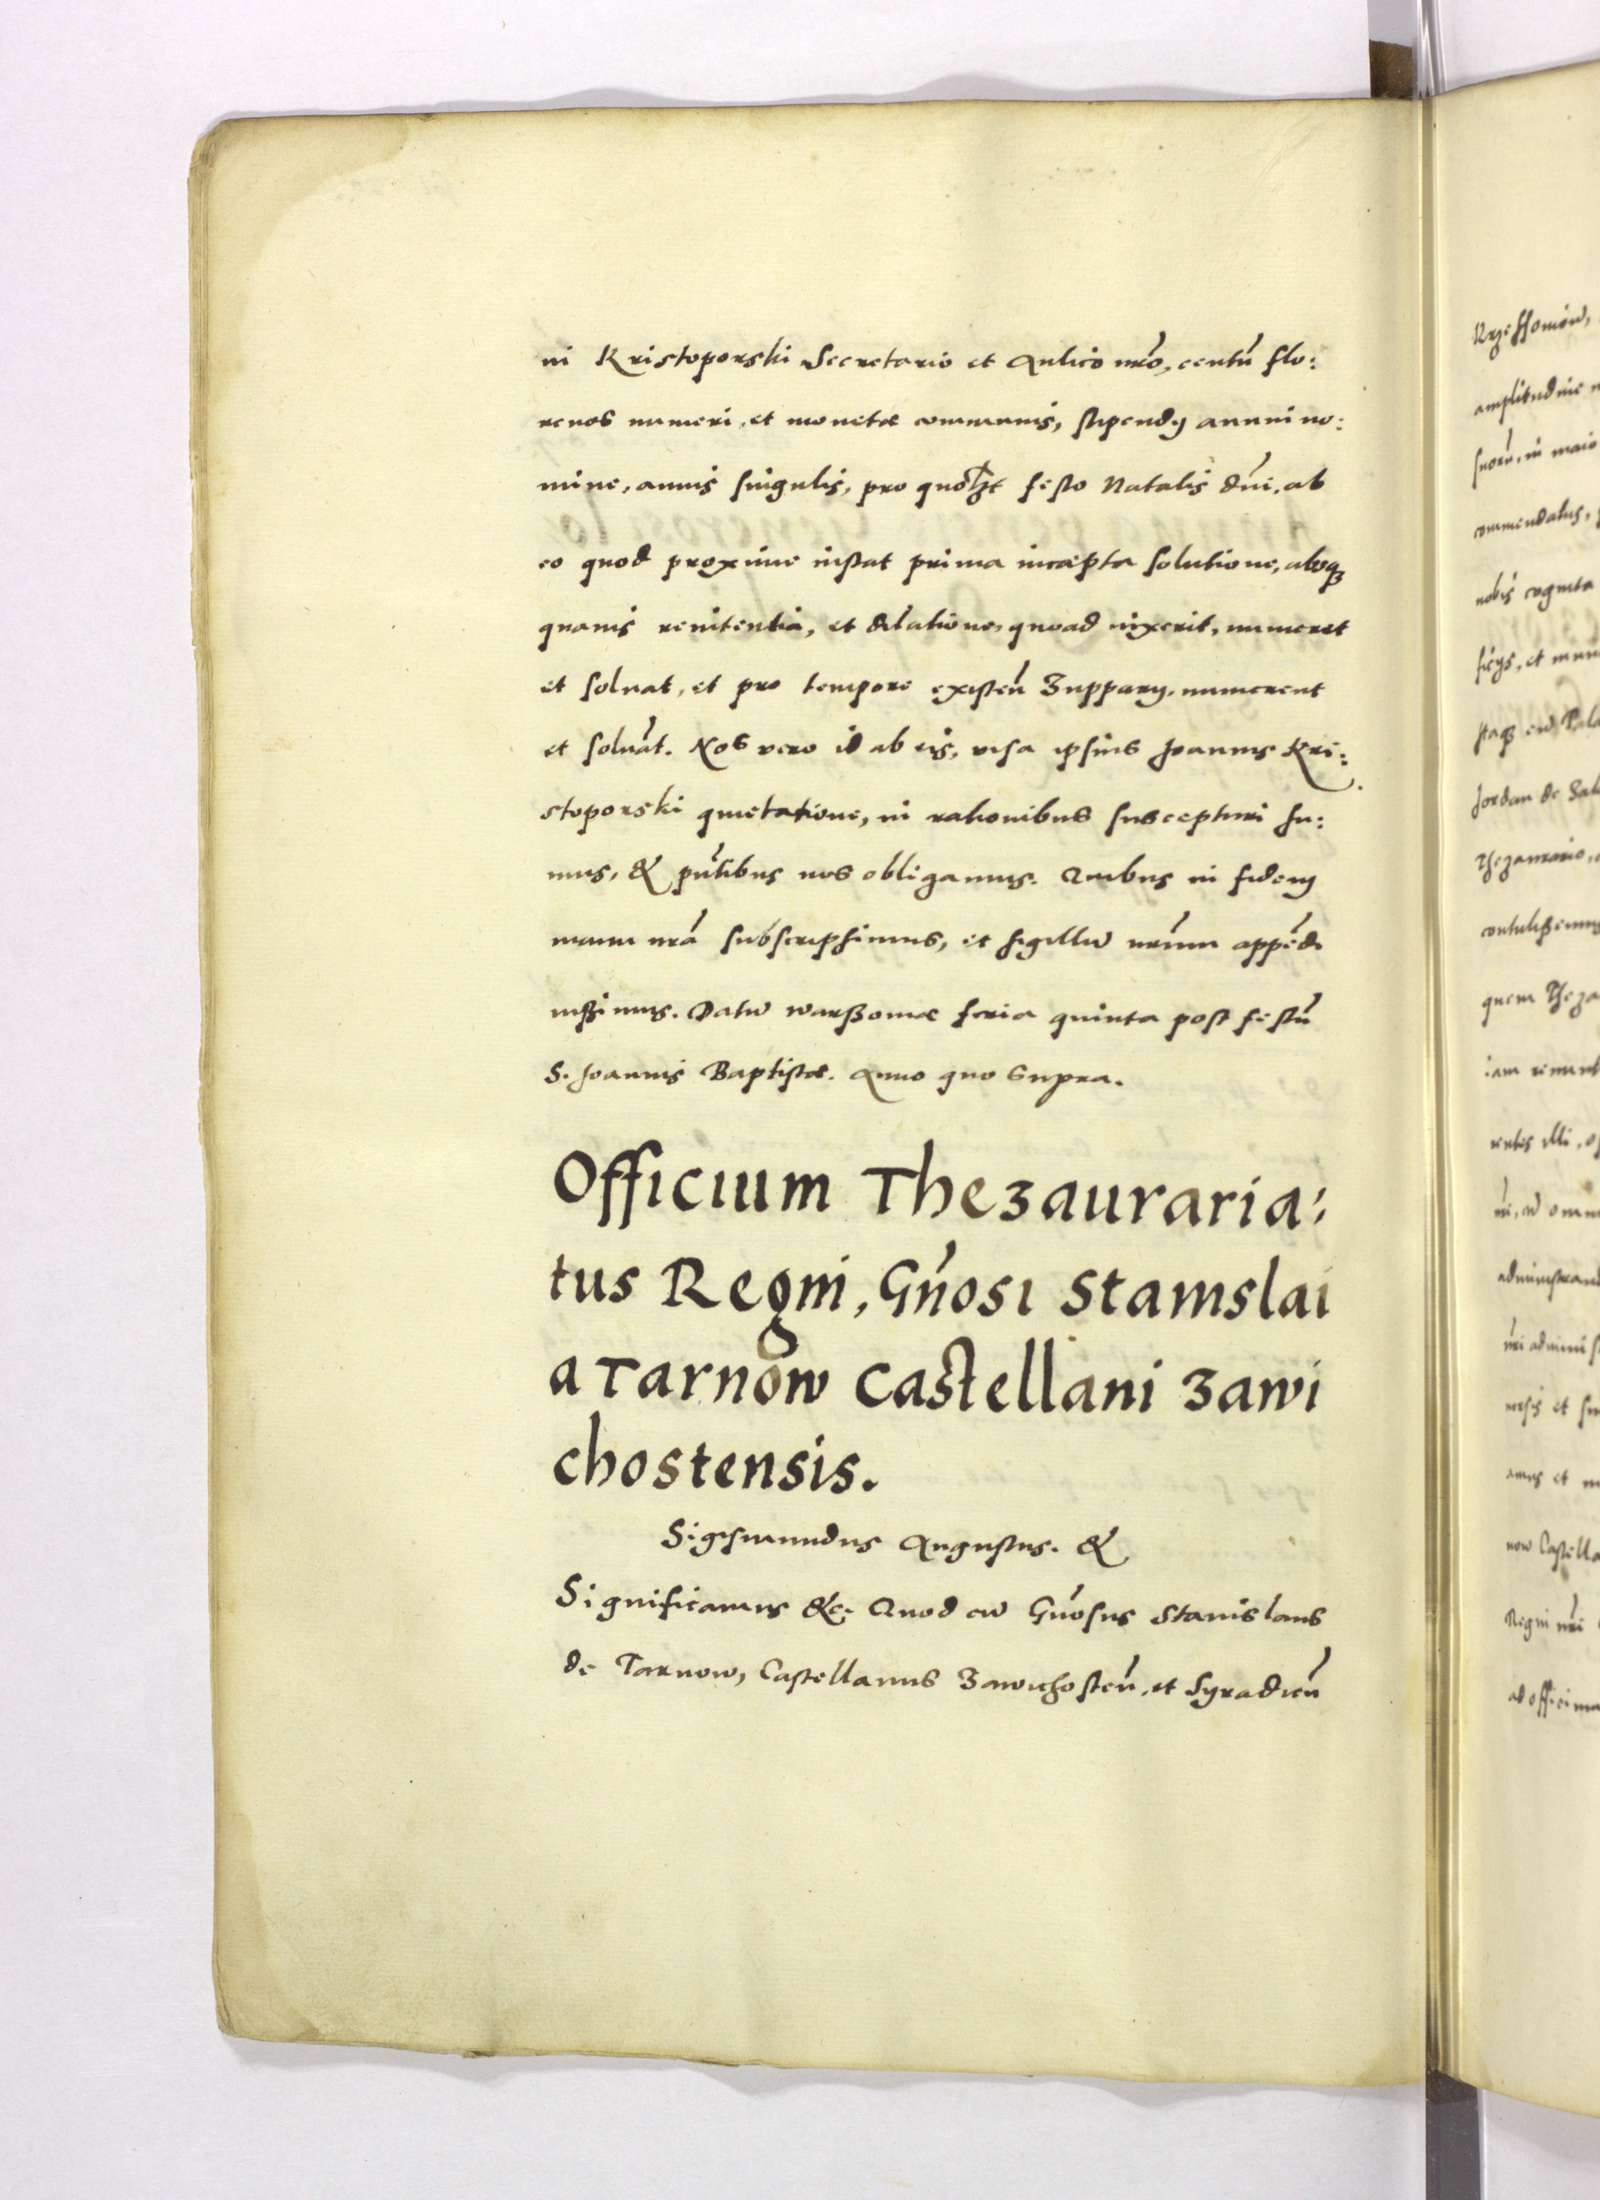 ni Kristoporski Secretario et Aulico nr̃o, centũ flo:
renos numeri, et monetæ communis, stipendÿ annui no:
mine, annis singulis, pro quolꝫt festo Natalis dñi, ab
eo quod proxime instat prima incæpta solutione, absqꝫ
quauis renitentia, et dilatione, quoad uixerit, numeret
et soluat, et pro tempore existeñ Zupparÿ, numerent
et soluãt. Nos vero id ab eis, visa ipsius Joannis Kri:
stoporski quietatione, in rationibus suscepturi su:
mus, & pñtibus nos obligamus. Quibus in fidem
manu nrã subscripsimus, et sigillũ nr̃um appẽdi
iußimus. Datũ Warßouiæ feria quinta post festũ
S. Joannis Baptistæ. Anno quo supra.
Officium Thezauraria:
tus Regni, Gñosi Stanislai
a Tarnow Castellani Zawi
chostensis.
Sigismundus Augustus. &
Significamus &c. Quod cũ Gñosus Stanislaus
de Tarnow, Castellanus Zawichosteñ, et Syradieñ
Rzessoniow,
amplitudine
suorũ, in
commendatus,
nobis cognita
et
Jordan de
Thezaurario,
quem
iam
illi,
et
now
Regni nr̃i